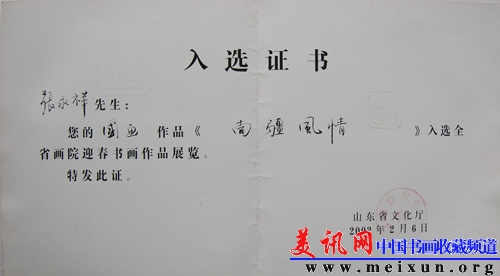 入选证书
張永祥先生：
您的 国画 作品《 南疆風情 》入选全
省画院迎春书画作品展览。
特发此证。
山东省文化厅
2002年2月6日
美讯网 中国书画收藏频道
www.meixun.org